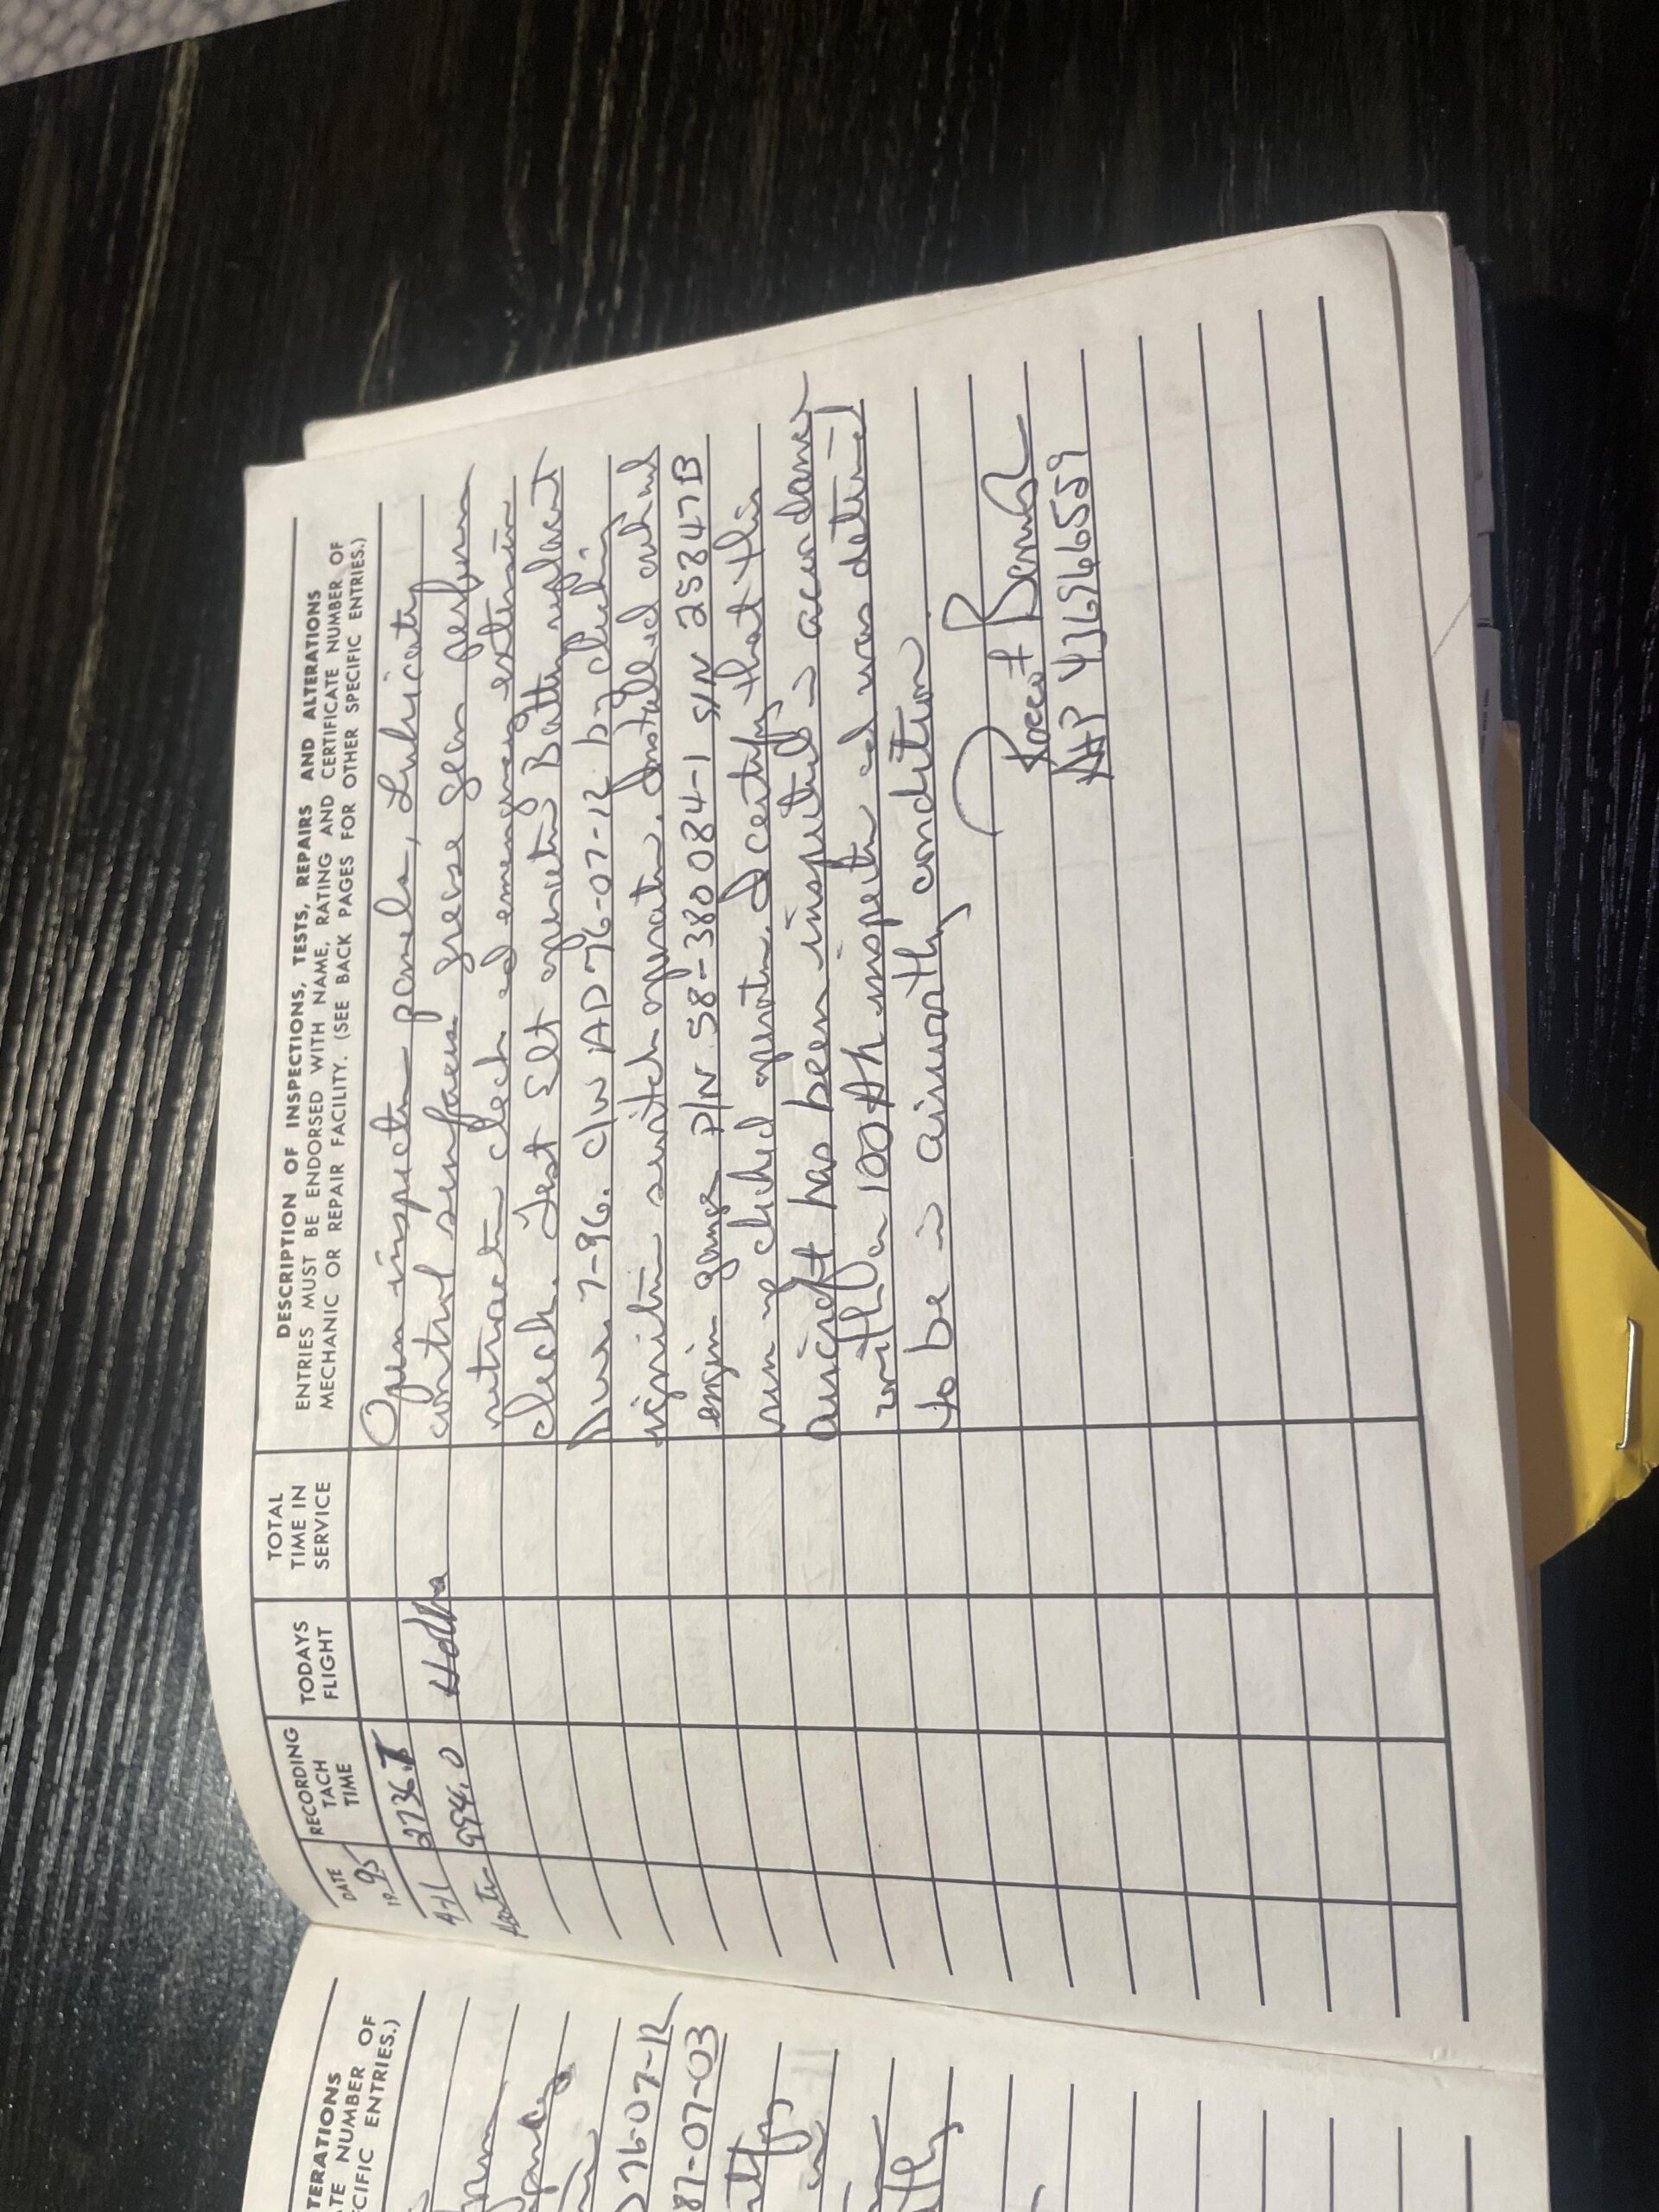 TERATIONS
TE NUMBER OF
CIFIC ENTRIES.)
76-07-12
87-07-03
DATE
19 95
RECORDING
TACH
TIME
TODAYS
FLIGHT
TOTAL
TIME IN
SERVICE
DESCRIPTION OF INSPECTIONS, TESTS, REPAIRS AND ALTERATIONS
ENTRIES MUST BE ENDORSED WITH NAME, RATING AND CERTIFICATE NUMBER OF
MECHANIC OR REPAIR FACILITY. (SEE BACK PAGES FOR OTHER SPECIFIC ENTRIES.)
Open inspection panels, Lubricate
control surfaces grease gear perform
retraction check and emergency extension
check. Test Elt operation Battery replacement
Due. 7-96. C/W AD 76-07-12 by checking
ignition switch operation. Installed
engine gauge P/N 58-380084-1 S/N 25847B
run up checked operation. I certify that this
aircraft has been inspected in accordance
with a 100 Hr inspection and was determined
to be in airworthy condition
994.0
A+P